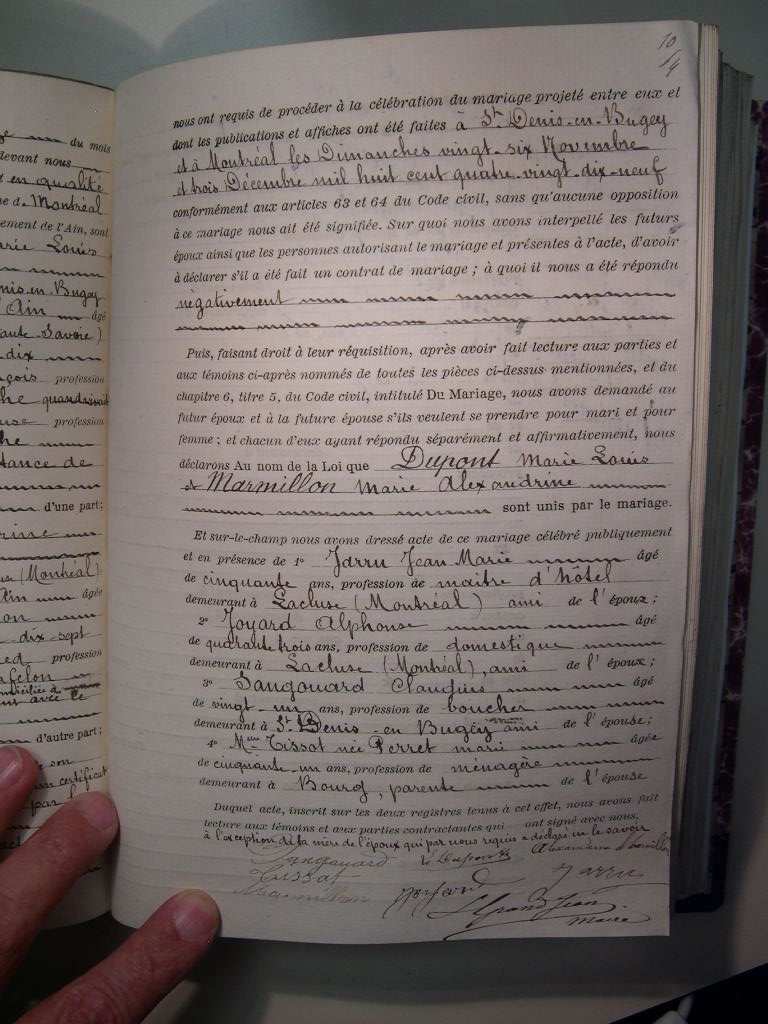 du mois
devant nous
en qualité
e de Montréal
ement de l'Ain, sont
arie Louis
enis-en-Bugey
Ain âgé
aute-Savoie)
dix
nçois profession
he
use profession
he
tance de
d'une part;
rine
(Montréal)
Ain âgée
on
dix-sept
ed profession
afelon
avec ce
d'autre part;
son
certificat
par l
10
4
nous ont requis de procéder à la célébration du mariage projeté entre eux et
dont les publications et affiches ont été faites à St Denis-en-Bugey
et à Montréal les Dimanches vingt-six Novembre
et trois Décembre mil huit cent quatre-vingt-dix-neuf
conformément aux articles 63 et 64 du Code civil, sans qu'aucune opposition
à ce mariage nous ait été signifiée. Sur quoi nous avons interpellé les futurs
époux ainsi que les personnes autorisant le mariage et présentes à l'acte, d'avoir
à déclarer s'il a été fait un contrat de mariage; à quoi il nous a été répondu
négativement
Puis, faisant droit à leur réquisition, après avoir fait lecture aux parties et
aux témoins ci-après nommés de toutes les pièces ci-dessus mentionnées, et du
chapitre 6, titre 5, du Code civil, intitulé Du Mariage, nous avons demandé au
futur époux et à la future épouse s'ils veulent se prendre pour mari et pour
femme; et chacun d'eux ayant répondu séparément et affirmativement, nous
déclarons Au nom de la Loi que Dupont Marie Louis
et Marmillon Marie Alexandrine
sont unis par le mariage.
Et sur-le-champ nous avons dressé acte de ce mariage célébré publiquement
et en présence de 1° Jarru Jean Marie âgé
de cinquante ans, profession de maître d'hôtel
demeurant à Lacluse (Montréal) ami de l'époux;
2° Joyard Alphonse âgé
de quarante trois ans, profession de domestique
demeurant à Lacluse (Montréal), ami de l'époux;
3° Sangouard Claudius âgé
de vingt-un ans, profession de boucher
demeurant à St Denis-en Bugey ami de l'épouse;
4° Mme Tissot née Perret marie âgée
de cinquante-un ans, profession de ménagère
demeurant à Bourg, parente de l'épouse
Duquel acte, inscrit sur les deux registres tenus à cet effet, nous avons fait
lecture aux témoins et aux parties contractantes qui ont signé avec nous,
à l'exception de la mère de l'époux qui par nous requise a déclaré ne le savoir
Sangouard Dupont Alexandrine Marmillon
Tissot Joyard Jarru
Marmillon Grandjean
Maire